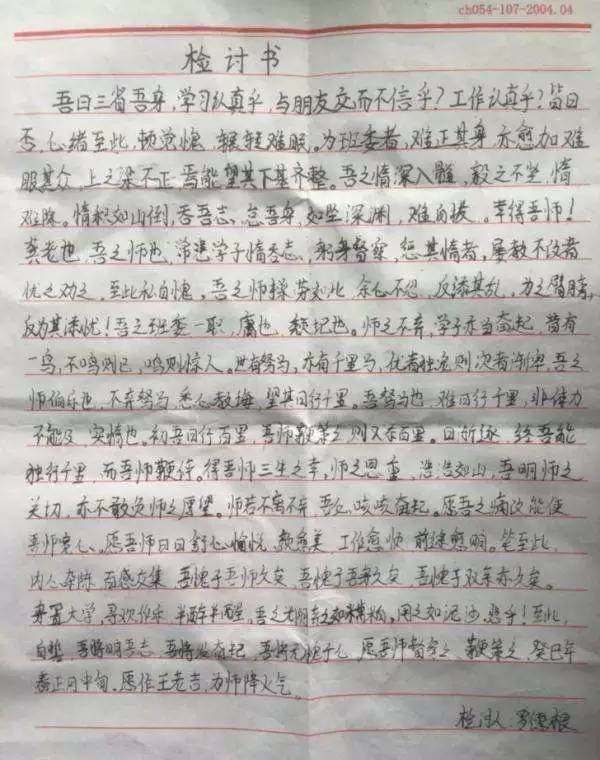 ch054-107-2004.04
检讨书
吾日三省吾身,学习认真乎,与朋友交而不信乎?工作认真乎?皆曰
否,心绪至此,顿觉愧,辗转难眠。为班委者,难正其身,亦愈加难
服其众,上之梁不正,焉能望其下基齐整。吾之惰深入髓,毅之不坐,惰
难除。惰积如山倒,吞吾志、怠吾身,如坐深渊,难自拔。幸得吾师!
龚老也,吾之师也,常进学子惰吞志、躬身督察,惩其惰者,屡教不改者
忧之劝之,至此私自愧,吾之师操劳如此,余心不忍,反添其乱,为之臂膀,
反力其添忧!吾之班委一职,庸也,疑圮也。师之不弃,学子亦当奋起,昔有
一鸟,不鸣则已,鸣则惊人。世有驽马,亦有千里马,优者独走则次者渐卑,吾之
师伯乐也,不弃驽马,悉心教诲,望其日行千里。吾驽马也,难日行千里,非体力
不能及,实惰也。初吾日行百里,吾师鞭策之则又添百里。日渐逐,终吾能
独行千里,而吾师鞭侍。得吾师三生之幸,师之恩重,浩浩如山,吾明师之
关切,亦不敢负师之愿望。师若不离不弃,吾必咬咬奋起。愿吾之痛改能使
吾师宽心、愿吾师日日舒心愉悦,颜愈美,工作愈顺,前途愈明。笔至此,
内人杂陈,百感交集,吾愧于吾师久矣,吾愧于吾身久矣,吾愧于双亲亦久矣。
身置大学,寻欢作乐,半醉半醒,吾之为朋友如槟榔,用之如泥沙,悲乎!至此,
自誓,吾将明吾志,吾将发奋起,吾将无愧于心,愿吾师督之,鞭策之,癸巳年
春正月中旬,愿作王老吉,为师降火气。
检讨人